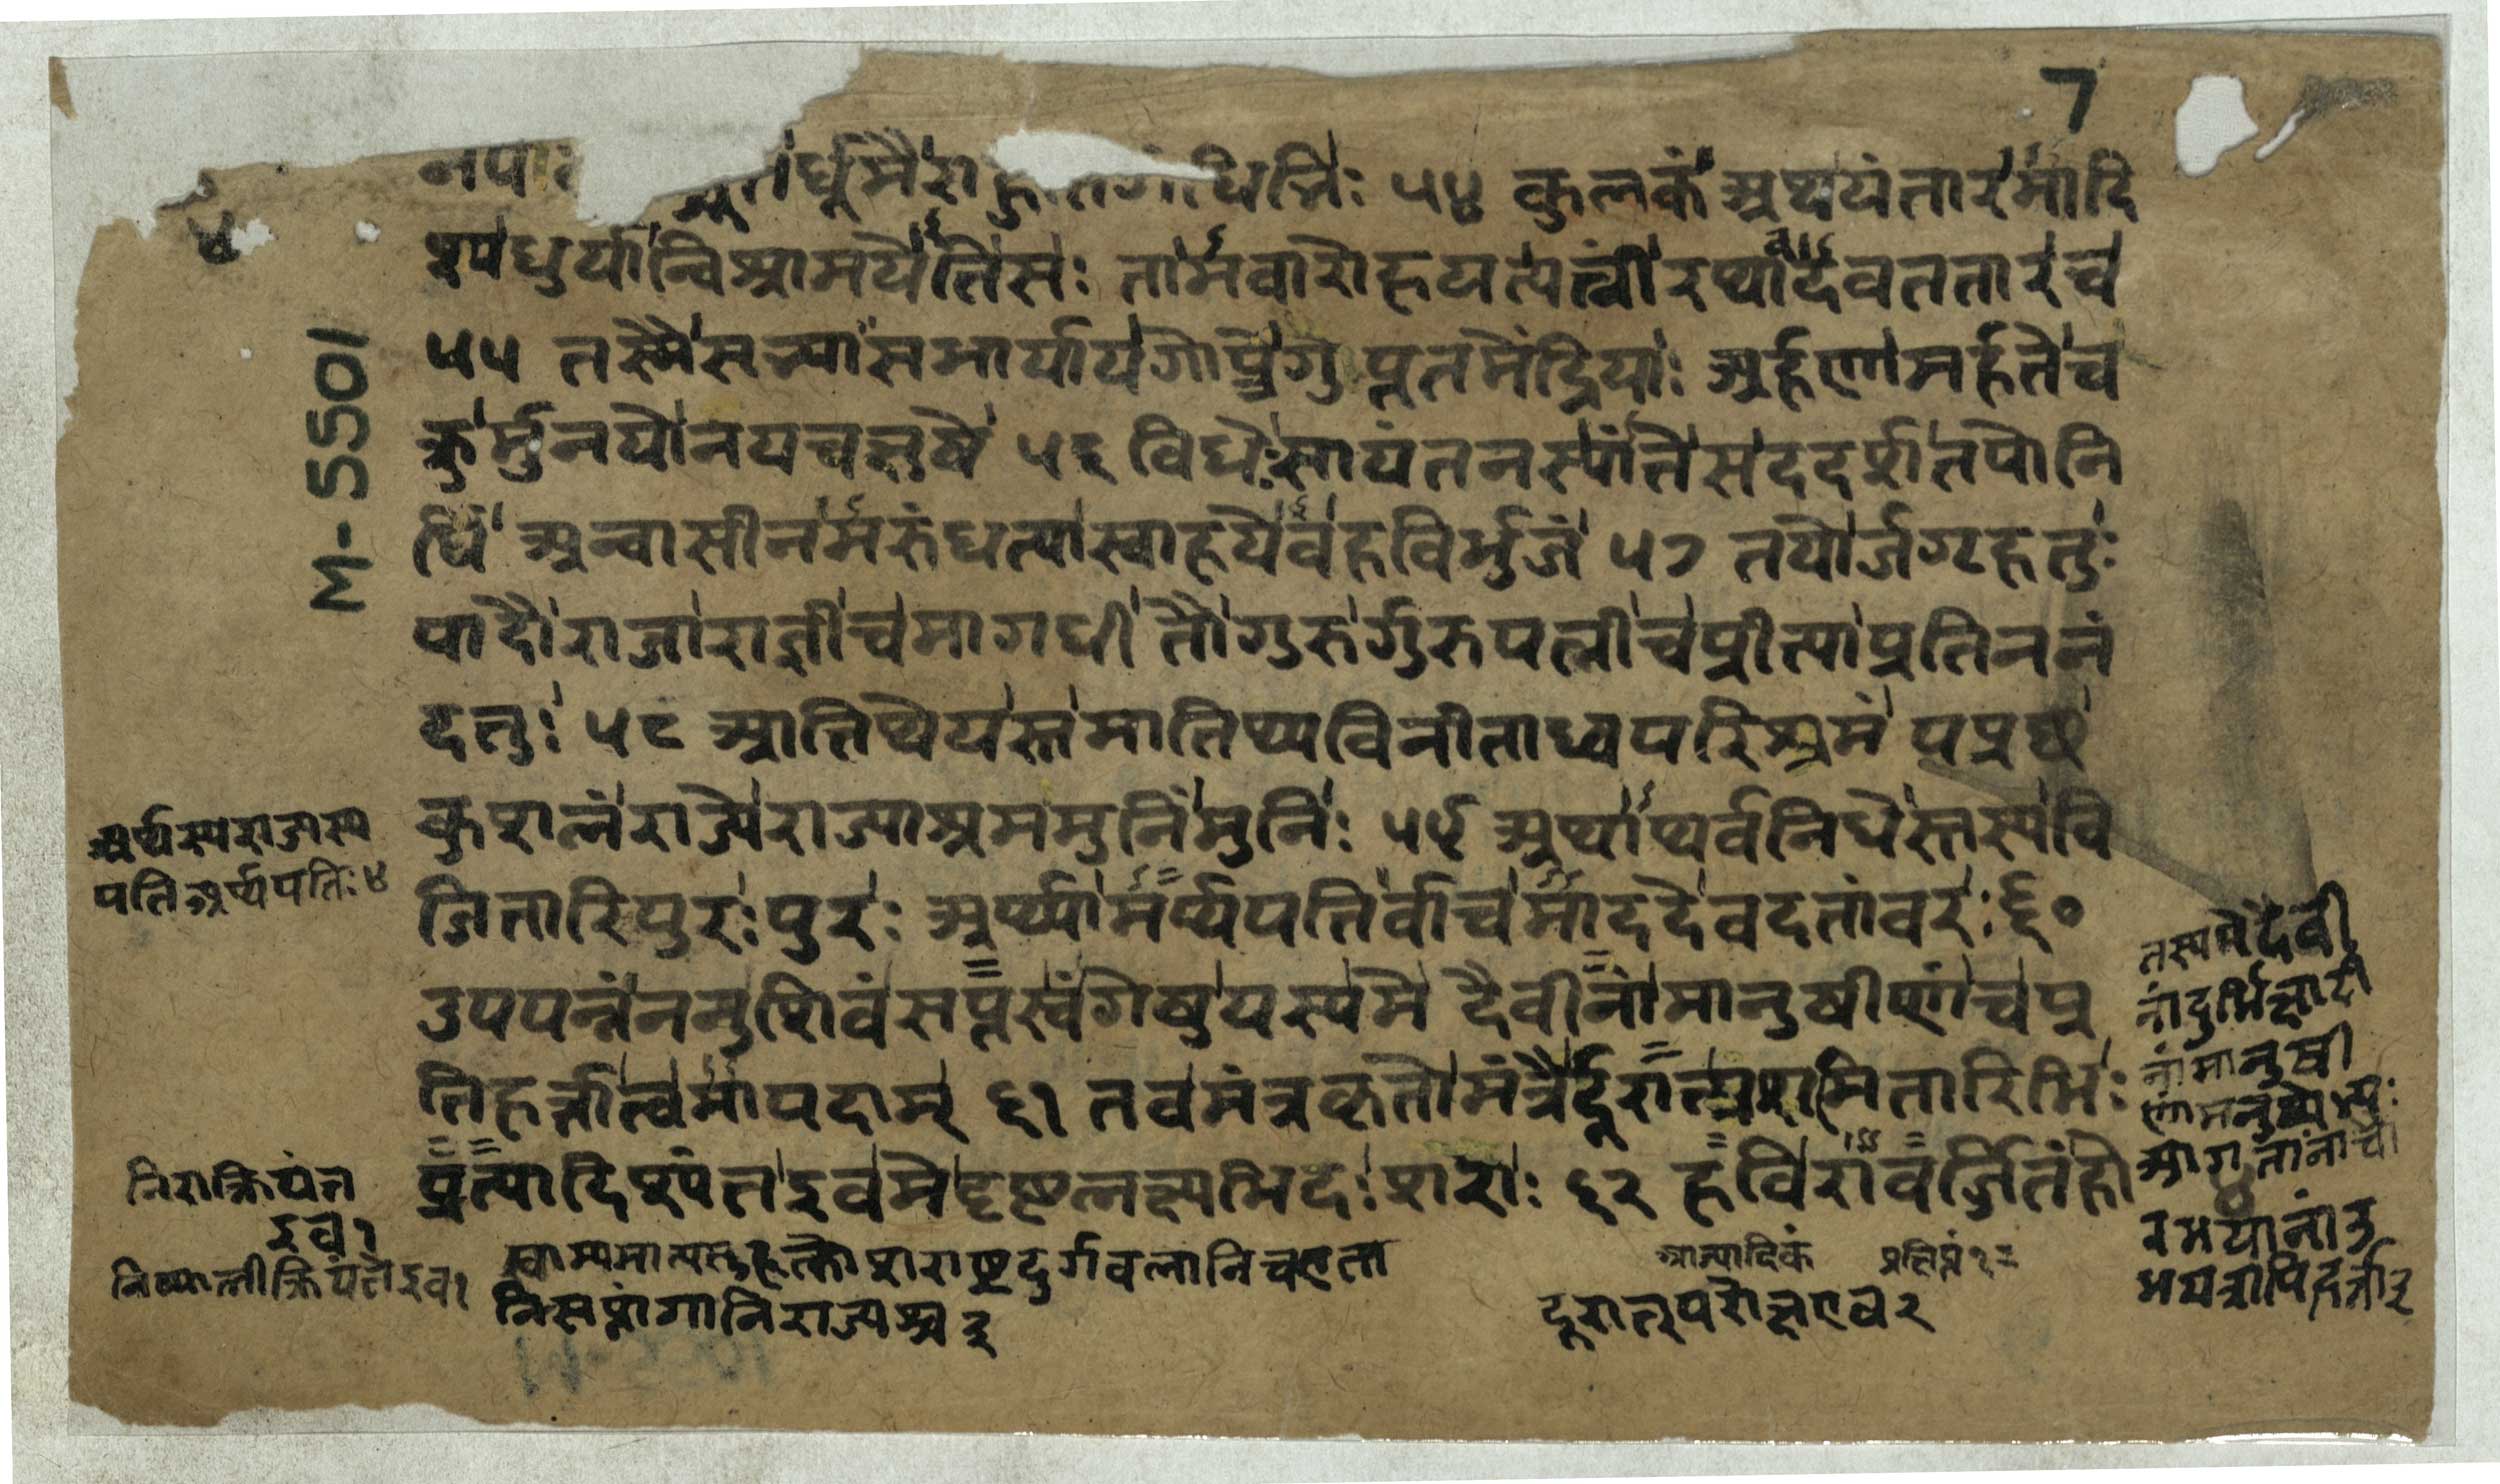 7
धूमैरा गंधिभिः ५४ कुलकं अथयंतारमादि
४
श्यधुर्यान्विश्रामयेतिसः तामवारोहयत्पत्नीं रथादवततारच
५५ तस्मैसभ्याःसभार्यायगोप्त्रेगुप्ततमेंद्रियाः अर्हणामर्हतेच
क्रुर्मुनयोनयचक्षुषे ५६ विधेःसायंतनस्यांतेसददर्शतपोनि
धिं अन्वासीनमरुंधत्यास्वाहयेवहविर्भुजं ५७ तयोर्जगृहतुः
पादौराजाराज्ञीचमागधी तौगुरुर्गुरुपत्नीचप्रीत्याप्रतिननं
दतुः ५८ आतिथेयस्तमातिथ्यविनीताध्वपरिश्रमं पप्रछ
कुशलंराज्येराज्याश्रममुनिंमुनिः ५९ अथाथर्वनिधेस्तस्यवि
जितारिपुरःपुरः अर्थ्यामर्थपतिर्वाचमाददेवदतांवरः ६०
उपपन्नंननुशिवंसप्तस्वंगेषुयस्यमे दैवीनांमानुषीणांचप्र
तिहर्त्तात्वमापदाम् ६१ तवमंत्रकृतोमंत्रैर्दूरात्प्रशमितारिभिः
प्रत्यादिश्यंतइवमेदृष्टलक्ष्यभिदःशराः ६२ हविरावर्जितंहो
M-5501
अर्थस्यराजास्य
पतिअर्थपतिः ४
निराक्रियंत
इव१
इव१
स्वाम्यमात्यसुहृत्कोशराष्ट्रदुर्गबलानिचएता
निसप्तांगानिराज्यस्य ३
दूरात्परोक्षएव २
तस्यमेदैवी
नांदुर्भिक्षादी
नांमानुषी
णांमनुष्येभ्यः
आगतानांचो
भयानांउ